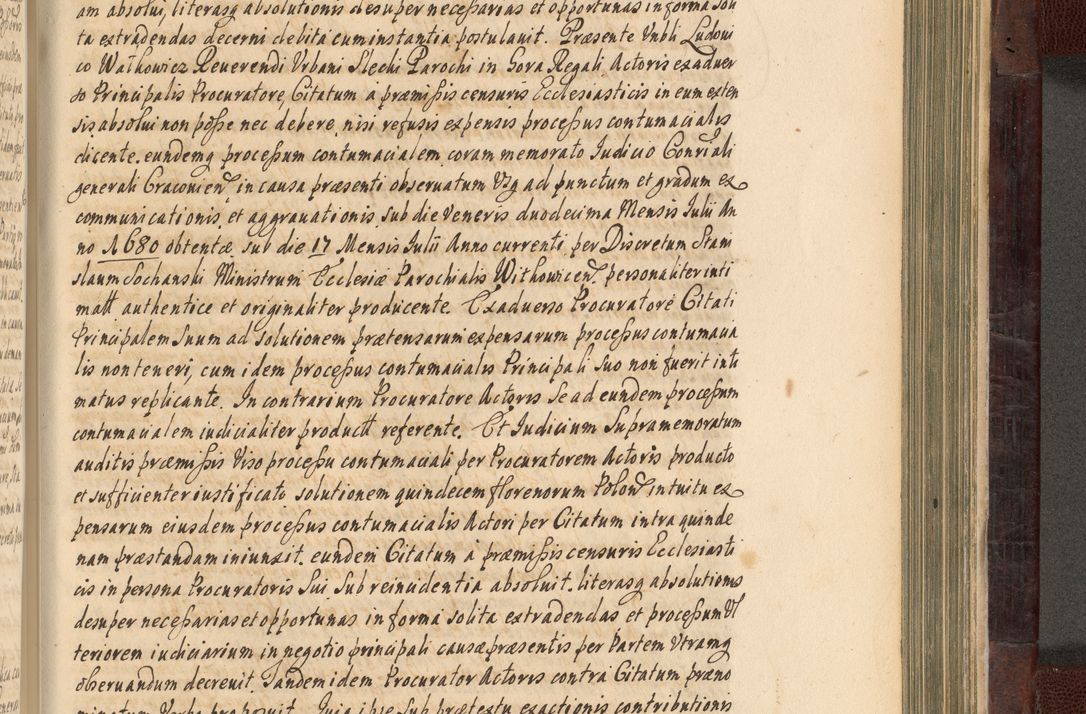 am absolui, literasq absolutionis desuper necessarias et opportunas in forma soli
ta extradendas decerni debita cum instantia postulauit. Præsente Vnbli Ludoui
co Wałkowicz Reuerendi Vrbani Slechi Parochi in Gora Regali Actoris exaduer
so Principalis Procuratore, Citatum a præmissis censuris Ecclesiasticis in eum exten
sis absolui non posse nec debere, nisi refusis expensis processus contumacialis
dicente. eundemq processum contumacialem coram memorato Iudicio Consiali
generali Cracouien in causa præsenti obseruatum Vsq ad punctum et gradum ex
communicationis et aggrauationis sub die Veneris duodecima Mensis Iulii An
no 1680 obtentæ sub die 17 Mensis Iulii Anno currenti per Discretum Stani
slaum Sochanski Ministrum Ecclesiæ Parochialis Withowicen personaliter inti
matt authentice et originaliter producente. Exaduerso Procuratore Citati
Principalem Suum ad solutionem prætensarum expensarum processus contumacia
lis non teneri, cum idem processus contumacialis Principali suo non fuerit inti
matus replicante. In contrarium Procuratore Actoris Se ad eundem processum
contumacialem iudicialiter productt referente. Et Iudicium Supramemoratum
auditis præmissis Viso processu contumaciali per Procuratorem Actoris producto
et sufficienter iustificato solutionem quindecem florenorum Polon intuitu ex
pensarum eiusdem processus contumacialis Actori per Citatum intra quinde
nam præstandam iniunxit. eundem Citatum a præmissis censuris Ecclesiasti
cis in persona Procuratoris Sui Sub reincidentia absoluit. literasq absolutionis
desuper necessarias et opportunas in forma solita extradendas et processum Vl
teriorem iudiciarium in negotio principali causæ præsentis per Partem Vtramq
obseruandum decreuit. Tandem idem Procurator Actoris contra Citatum præno
minatum Verba proposuit. Quia ipse Sub prætextu exactionis contributionis